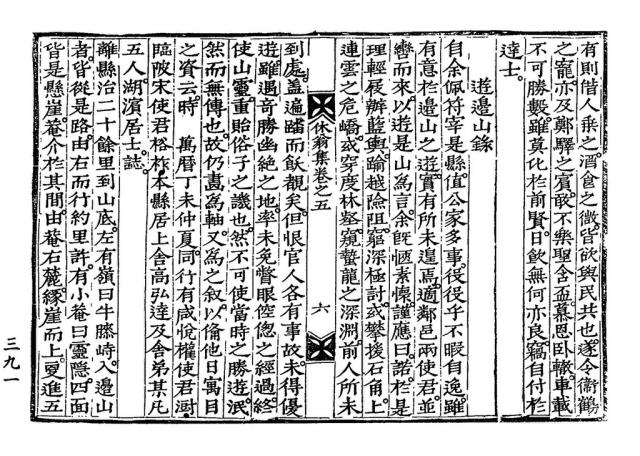 有則借人乘之酒食之徵皆欲與民共也遂令衞鶴
之寵亦及鄭驛之賓敢不樂聖含盃慕恩臥轍車載
不可勝數雖莫化於前賢日飮無何亦良竊自付於
達士
遊邊山錄
自余佩符宰是縣値公家多事役役乎不暇自逸雖
有意於邊山之遊實有所未遑焉適鄰邑兩使君並
轡而來以遊是山爲言余旣恆素慄謹應曰諾於是
理輕屐辦藍輿踰越險阻窮深極討或攀援石角上
連雲之危嶠或穿度林壑窺蟄龍之深淵前人所未
到處盖遍踏而飫觀矣但恨官人各有事故未得優
遊雖遇奇勝幽絶之地率未免瞥眼倥偬之經過終
使山靈重貽俗子之譏也然不可使當時之勝遊泯
然而無傳也故仍畫爲軸又爲之叙以備他日寓目
之資云時 萬曆丁未仲夏同行有咸悅權使君澍
臨陂宋使君
本縣居上舍高弘達及舍弟某凡
五人湖濱居士誌
離縣治二十餘里到山底左有嶺曰牛
峙入邊山
者皆從是路由右而行約里許有小菴曰靈隱四面
皆是懸崖菴介於其間由菴右麓緣崖而上更進五
休翁集卷之五
六
三九一